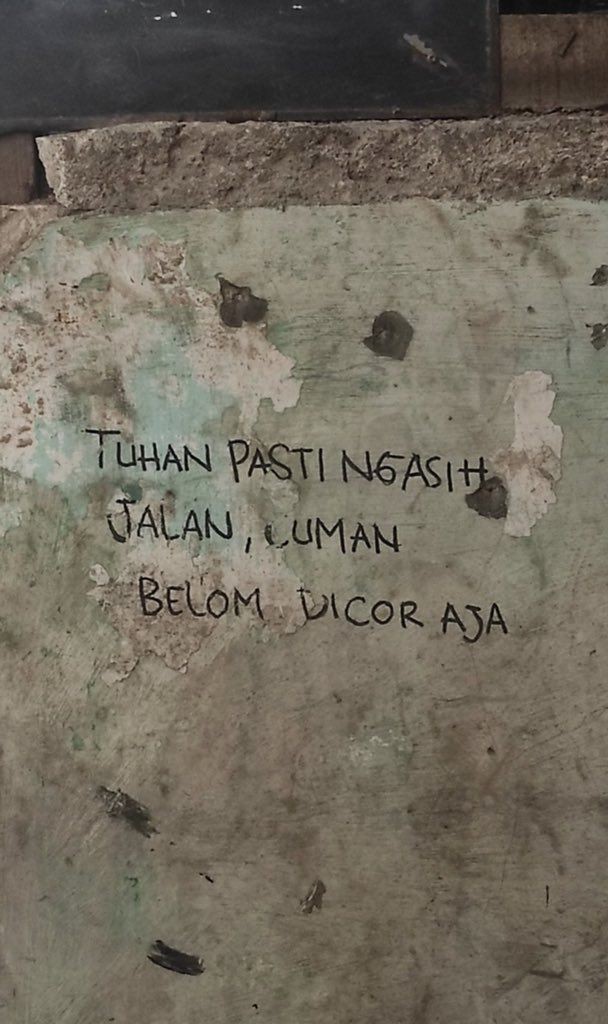 TUHAN PASTI NGASIH
JALAN, CUMAN
BELOM DICOR AJA